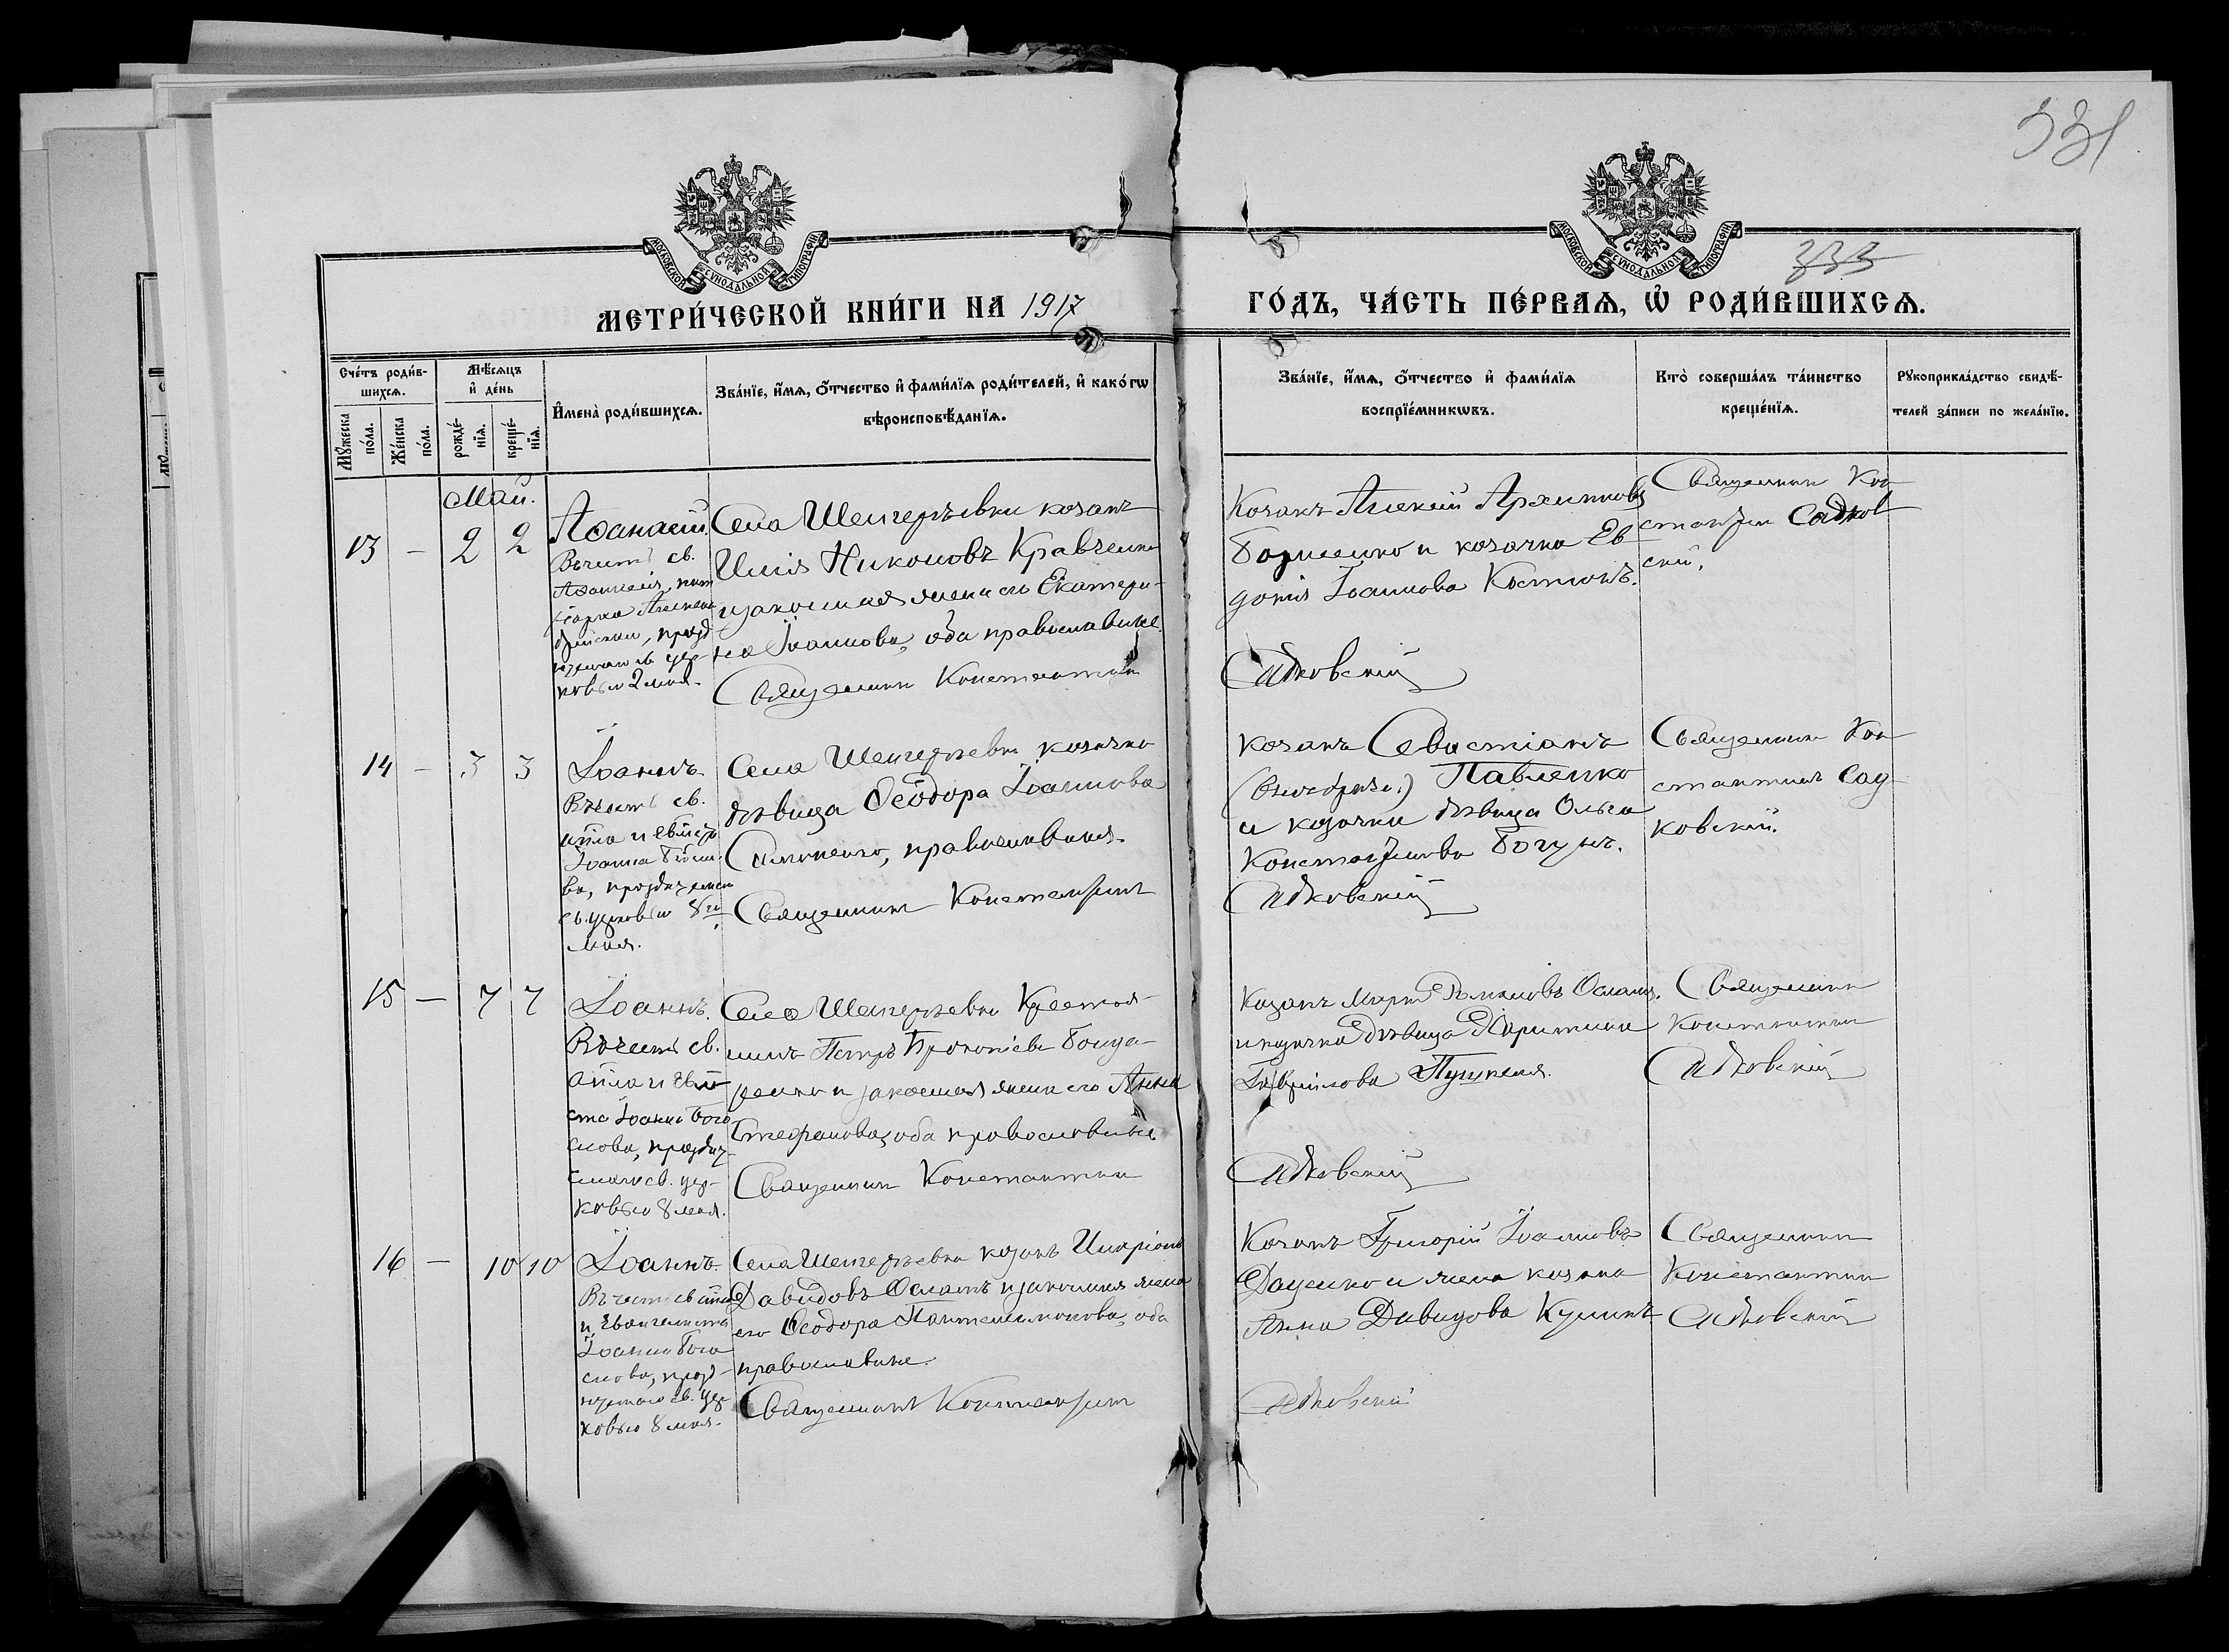 331
333
МОСКОВСКОЙ СѴНОДАЛЬНОЙ ТИПОГРАФІИ
МОСКОВСКОЙ СѴНОДАЛЬНОЙ ТИПОГРАФІИ
МЕТРИ́ЧЕСКОЙ КНИ́ГИ НА 1917
ГО́ДЪ, ЧА́СТЬ ПЕ́РВАѦ, Ѡ҆ РОДИ́ВШИХСѦ.
Сче́тъ роди́в-
шихсѧ.
Мꙋ́жеска
по́ла.
Же́нска
по́ла.
Мѣ́сѧцъ
и҆ де́нь
рожде́-
нїѧ.
креще́-
нїѧ.
И҆мена̀ роди́вшихсѧ.
Зва́нїе, и҆́мѧ, ѻ҆́тчество и҆ фами́лїѧ роди́телей, и҆ како́гѡ
вѣроисповѣ́данїѧ.
Зва́нїе, и҆́мѧ, ѻ҆́тчество и҆ фами́лїѧ
воспрїе́мникѡвъ.
Кто̀ соверша́лъ та́инство
креще́нїѧ.
Рꙋкоприкла́дство свидѣ́-
телей за́писи по жела́нїю.
Май.
13 — 2 2
Аѳанасій.
Въ честь св.
ковью 2 мая.
Села Шенгеръевки козакъ
Никоновъ Кравченко
и законная жена его Екатери-
на Іоаннова, оба православные.
Священникъ Константинъ
Козакъ Алексій Архиповъ
Борисенко и козачка Ев-
докія Іоаннова Костюкъ.
Садковскій
Священникъ Кон-
стантинъ Садков-
скій.
14 — 3 3
Іоаннъ.
Въ честь св.
Іоанна
св. церковью 8го
мая.
Села Шенгеръевки козачка
дѣвица Ѳеодора Іоаннова
православная.
Священникъ Константинъ
Козакъ Севастіанъ
Павленко
и козачка дѣвица Ольга
Константинова Богунъ.
Садковскій
Священникъ Кон-
стантинъ Сад-
ковскій.
15 — 7 7
Іоаннъ.
Въ честь св.
ста Іоанна Бого-
слова, празднуе-
маго св. цер-
ковью 8 мая.
Села Шенгеръевки Крестья-
нинъ Петръ Прокопіевъ Бонда-
ренко и законная жена его Анна
Стефанова, оба православные
Священникъ Константинъ
Козакъ
и козачка дѣвица Харитина
Гавриилова
Садковскій
Священникъ
Константинъ
Садковскій
16 — 10 10
Іоаннъ.
и Евангелиста
Іоанна Бого-
слова, празд-
нуемаго св. цер-
ковью 8 мая.
Села Шенгеръевки козакъ Иларіонъ
Давидовъ и законная жена
его Ѳеодора Пантелеимонова, оба
православные.
Священникъ Константинъ
Козакъ Григорій Іоанновъ
Даценко и жена козака
Анна Давидова
Садковскій
Священникъ
Константинъ
Садковскій